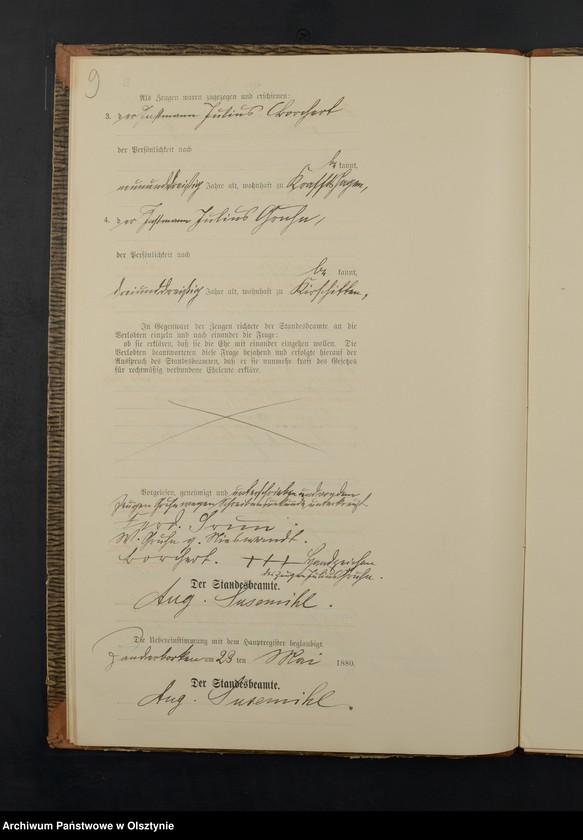 9
Als Zeugen waren zugezogen und erschienen:
3. der Instmann Julius Borchert
der Persönlichkeit nach
be kannt,
neununddreißig Jahre alt, wohnhaft zu Krafftshagen,
4. der Instmann Julius Gruhn,
der Persönlichkeit nach
be kannt,
dreiunddreißig Jahre alt, wohnhaft zu Kirschitten,
In Gegenwart der Zeugen richtete der Standesbeamte an die
Verlobten einzeln und nach einander die Frage:
ob sie erklären, daß sie die Ehe mit einander eingehen wollen. Die
Verlobten beantworteten diese Frage bejahend und erfolgte hierauf der
Ausspruch des Standesbeamten, daß er sie nunmehr kraft des Gesetzes
für rechtmäßig verbundene Eheleute erkläre.
Vorgelesen, genehmigt und unterschrieben und von dem
Zeugen Gruhn wegen Schreibensunkunde unterkreuzt
Ferd. Grun
W. Gruhn g.
Borchert. +++ Handzeichen
des Zeugen Julius Gruhn.
Der Standesbeamte.
Aug. Susemihl.
Die Uebereinstimmung mit dem Hauptregister beglaubigt
am 23 ten Mai 1880.
Der Standesbeamte.
Aug. Susemihl.
Archiwum Państwowe w Olsztynie